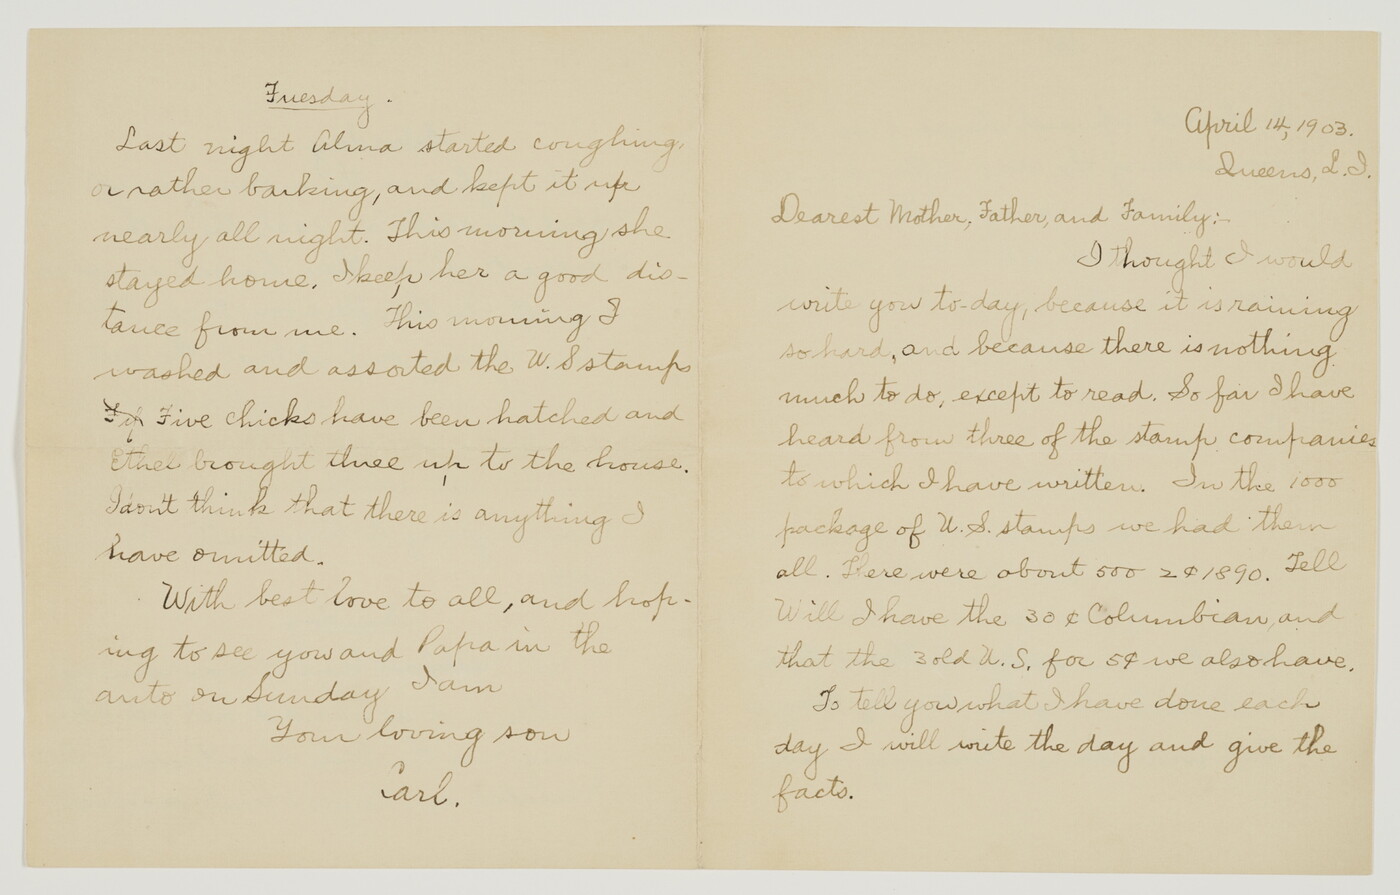 April 14, 1903.
Queens, L. I.
Dearest Mother, Father, and Family:-
I thought I would
write you to-day, because it is raining
so hard, and because there is nothing
much to do, except to read. So far I have
heard from three of the stamp companies
to which I have written. In the 1000
package of U. S. stamps we had them
all. Here were about 500 2¢ 1890. Tell
Will I have the 30¢ Columbian, and
that the 3 old U. S. for 5¢ we also have.
To tell you what I have done each
day I will write the day and give the
facts.
Tuesday.
Last night Alma started coughing,
or rather barking, and kept it up
nearly all night. This morning she
stayed home. I keep her a good dis-
tance from me. This morning I
washed and assorted the U. S stamps
Five chicks have been hatched and
Ethel brought three up to the house.
I don't think that there is anything I
have omitted.
With best love to all, and hop-
ing to see you and Papa in the
auto on Sunday I am
Your loving son
Carl.